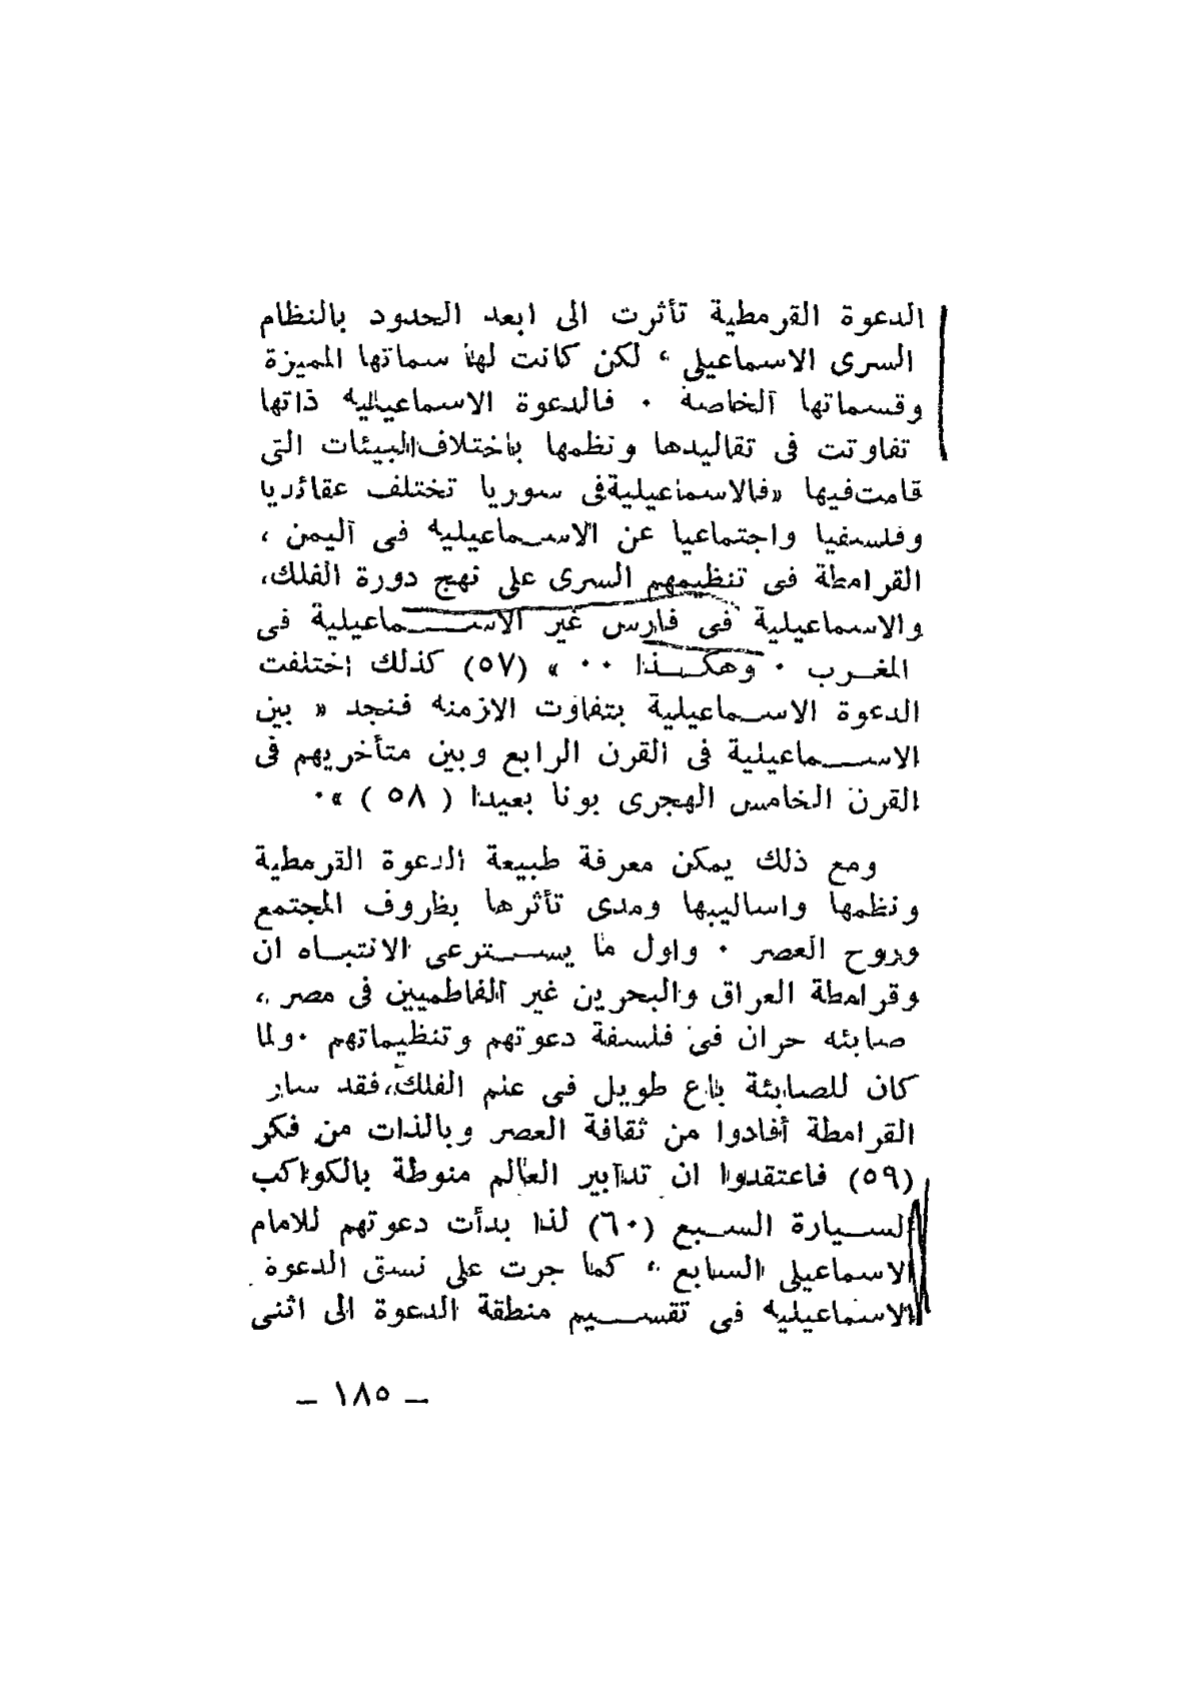 الدعوة القرمطية تأثرت الى ابعد الحدود بالنظام
السرى الاسماعيلى ، لكن كانت لها سماتها المميزة
وقسماتها الخاصة ٠ فالدعوة الاسماعيلية ذاتها
تفاوتت فى تقاليدها ونظمها باختلاف البيئات التى
قامت فيها «فالاسماعيلية فى سوريا تختلف عقائديا
وفلسفيا واجتماعيا عن الاسماعيلية فى اليمن ،
القرامطة فى تنظيمهم السرى على نهج دورة الفلك،
والاسماعيلية فى فارس غير الاسماعيلية فى
المغرب ٠ وهكذا ٠٠ » (٥٧) كذلك اختلفت
الدعوة الاسماعيلية بتفاوت الازمنه فنجد « بين
الاسماعيلية فى القرن الرابع وبين متأخريهم فى
القرن الخامس الهجرى بونا بعيدا ( ٥٨ ) »٠
ومع ذلك يمكن معرفة طبيعة الدعوة القرمطية
ونظمها واساليبها ومدى تأثرها بظروف المجتمع
وروح العصر ٠ واول ما يسترعى الانتباه ان
وقرامطة العراق والبحرين غير الفاطميين فى مصر ،
صابئه حران فى فلسفة دعوتهم وتنظيماتهم ٠ولما
كان للصابئة باع طويل فى علم الفلك،فقد ساير
القرامطة أفادوا من ثقافة العصر وبالذات من فكر
(٥٩) فاعتقدوا ان تدابير العالم منوطة بالكواكب
السيارة السبع (٦٠) لذا بدأت دعوتهم للامام
الاسماعيلى السابع ، كما جرت على نسق الدعوة
الاسماعيلية فى تقسيم منطقة الدعوة الى اثنى
– ١٨٥ –